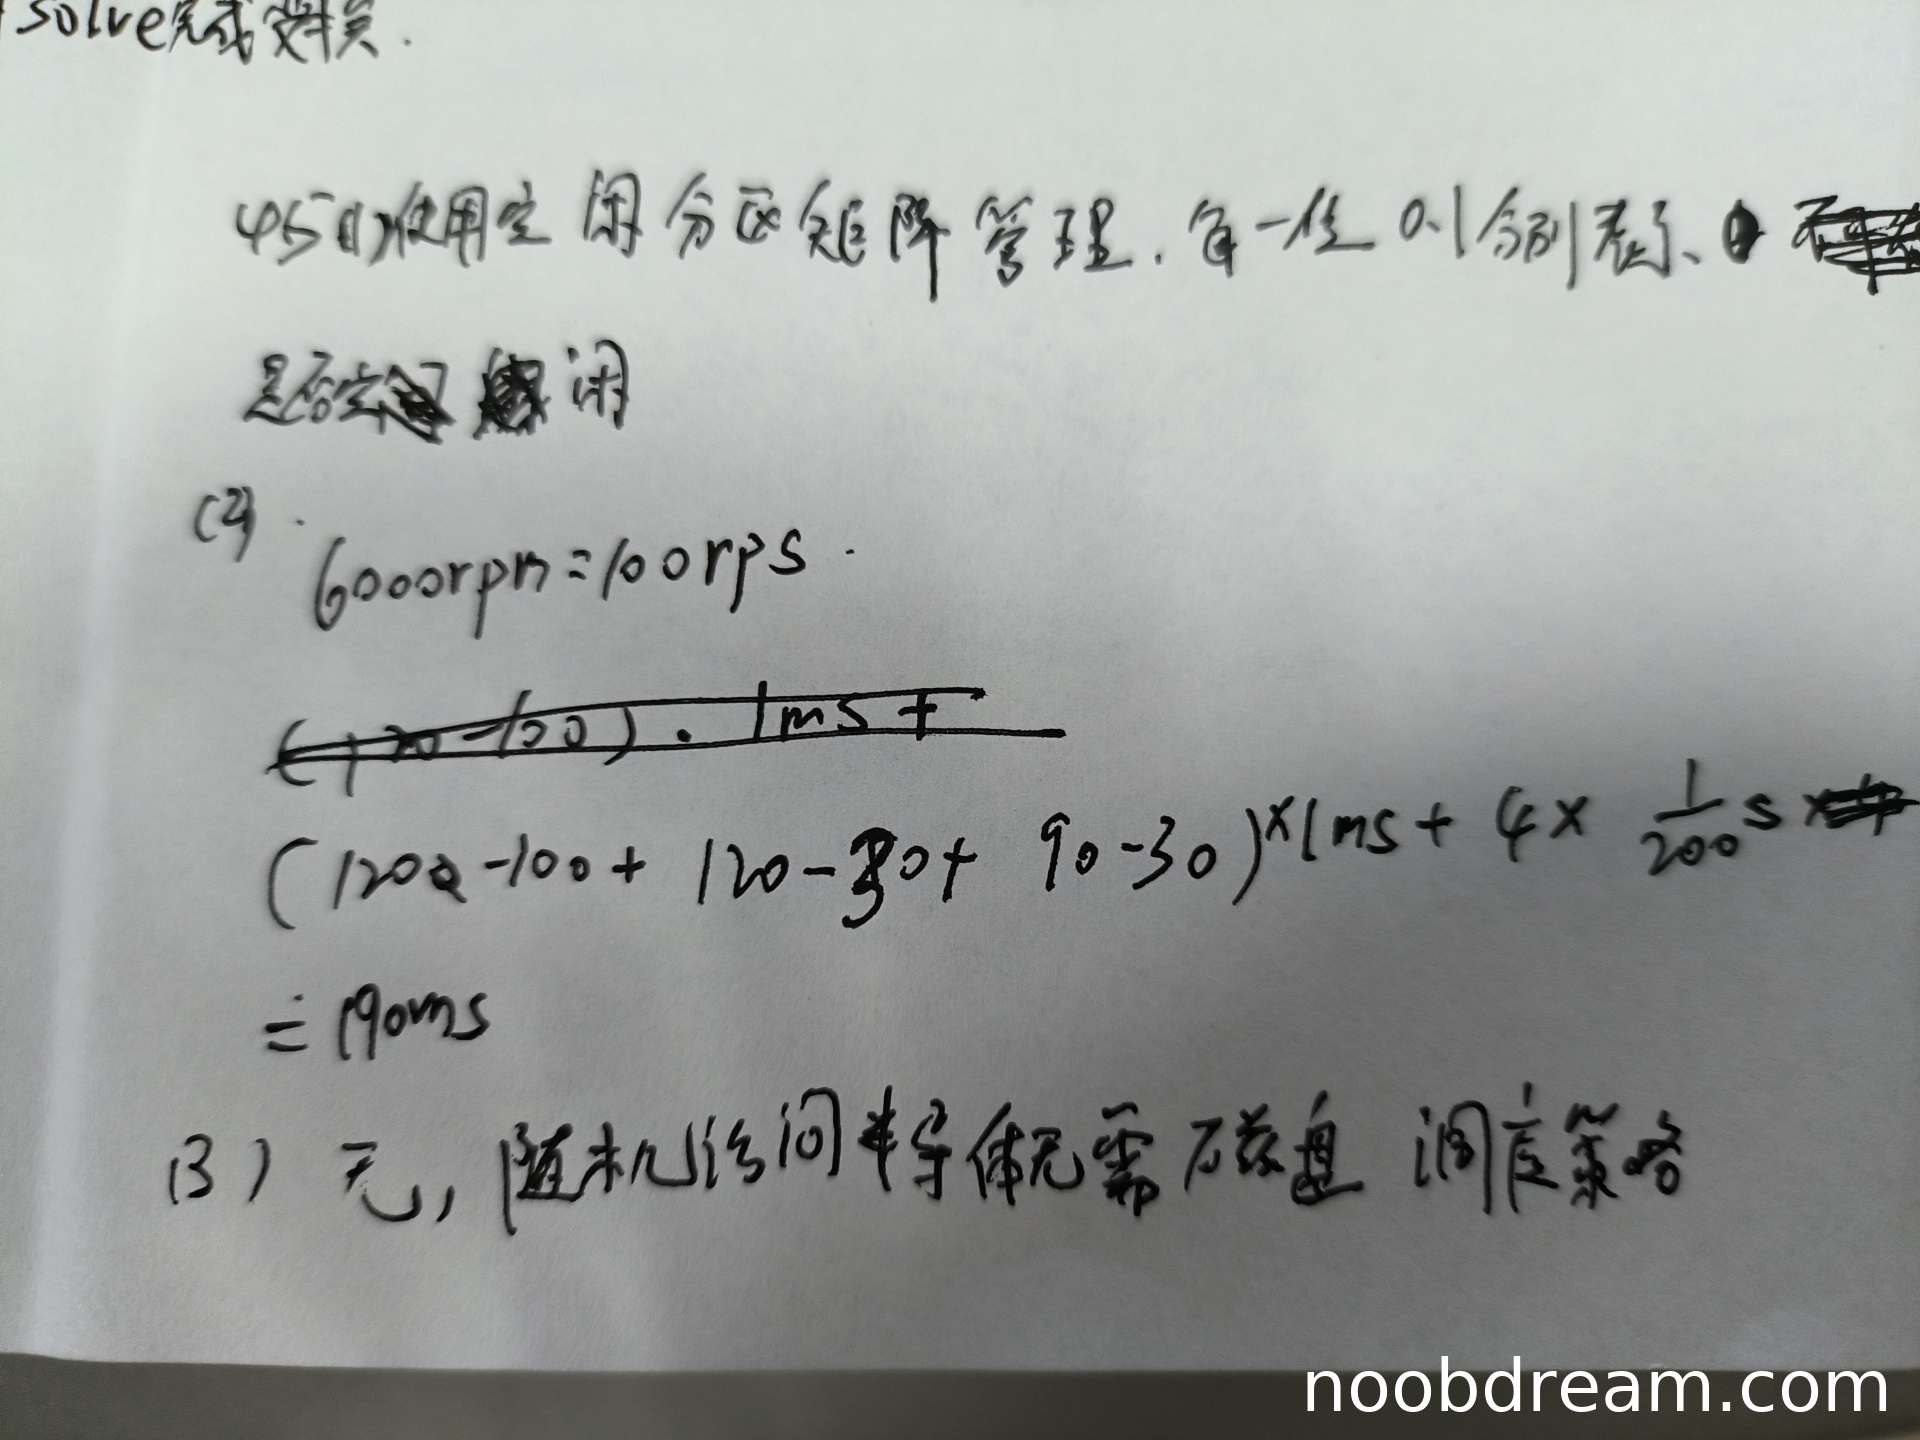 solve完成变换.
45(1)使用空闲分区矩阵管理.每一位0.1分别表示、
是否空闲
(2).
6000rpm=100rps.
(120-100).1ms+
(120-100+120-30+90-30)×1ms+4×1/200s×
=190ms
(3)无,随机访问半导体无需磁盘调度策略
noobdream.com